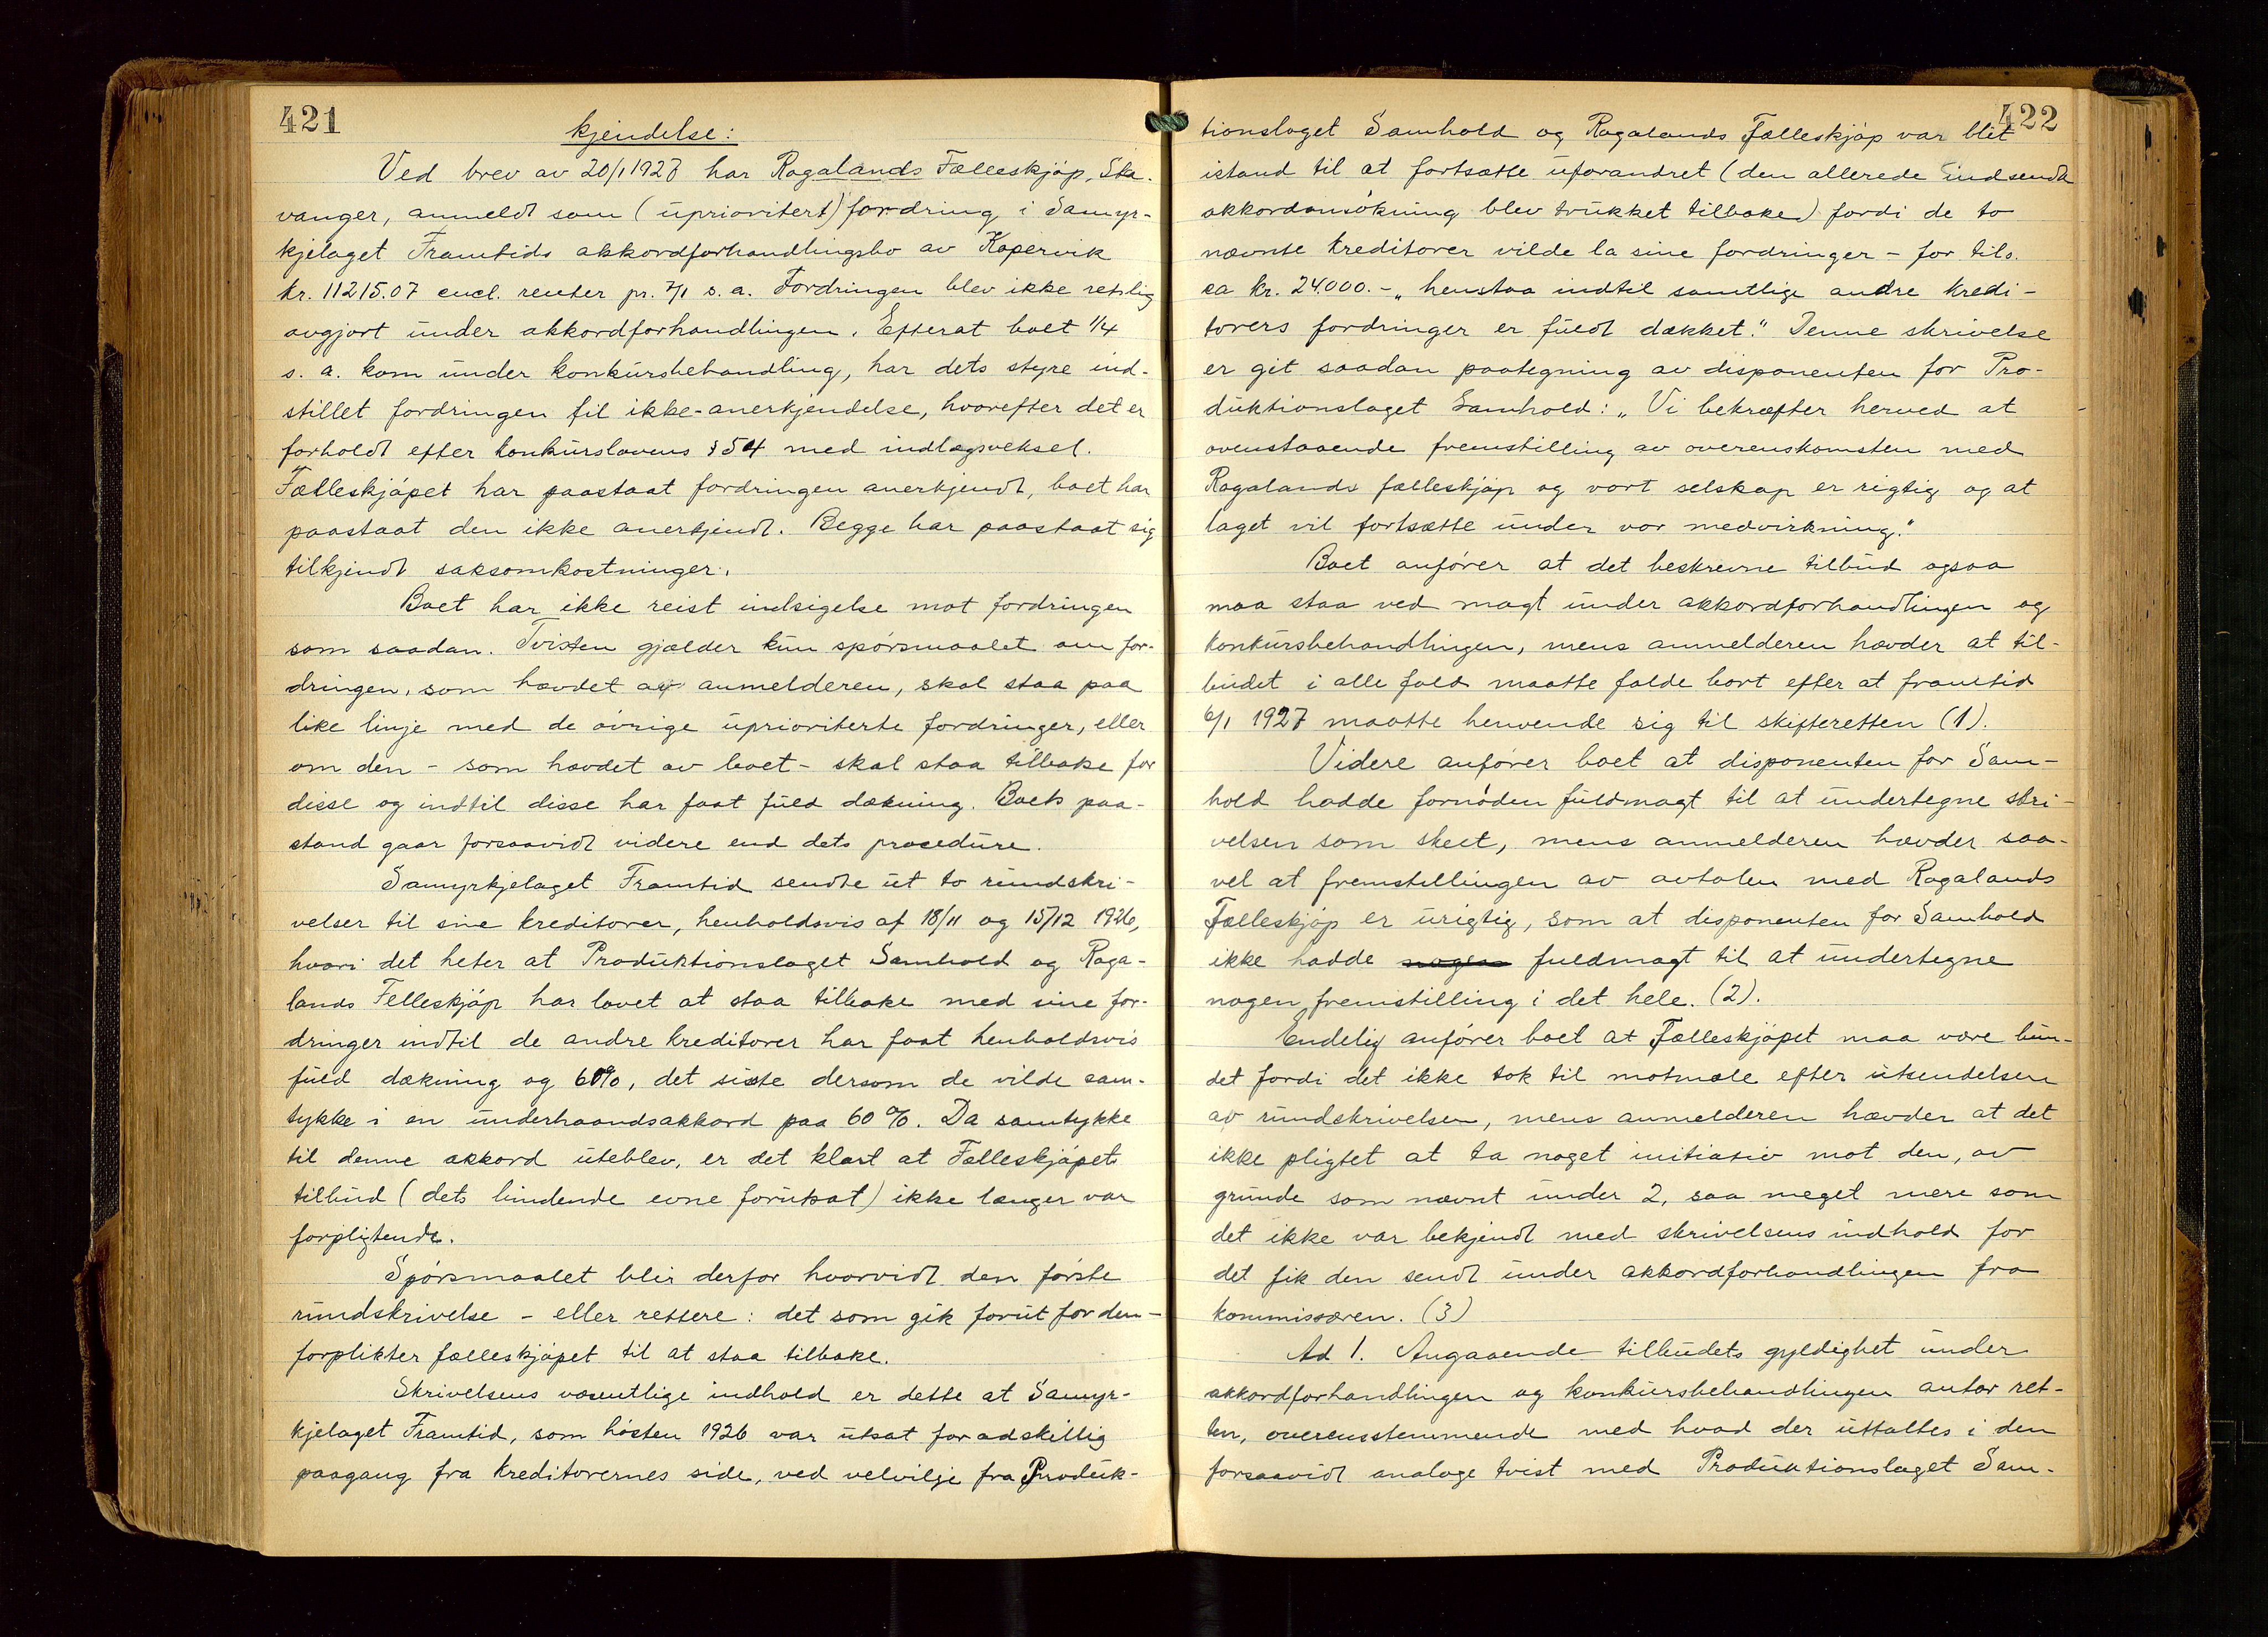 421
kjendelse:
Ved brev av 20/1 1927 har Rogalands Fælleskjöp, Sta-
vanger, anmeldt som (uprioritert) fordring i Samyr-
kjelaget Framtids akkordforhandlingsbo av Kopervik
kr. 11215.07 encl. renter pr. 7/1 s. a. Fordringen blev ikke retslig
avgjort under akkordforhandlingen. Efterat boet 1/4
s. a. kom under konkursbehandling, har dets styre ind-
stillet fordringen til ikke-anerkjendelse, hvorefter det er
forholdt efter konkurslovens § 54 med indlægsveksel.
Fælleskjöpet har paastaat fordringen anerkjendt, boet har
paastaat den ikke anerkjendt. Begge har paastaat sig
tilkjendt saksomkostninger.
Boet har ikke reist indsigelse mot fordringen
som saadan. Tvisten gjælder kun spörsmaalet om for-
dringen, som hævdet av anmelderen, skal staa paa
like linje med de övrige uprioriterte fordringer, eller
om den - som hævdet av boet - skal staa tilbake for
disse og indtil disse har faat fuld dækning. Boets paa-
stand gaar forsaavidt videre end dets procedure.
Samyrkjelaget Framtid sendte ut to rundskri-
velser til sine kreditorer, henholdsvis af 18/11 og 15/12 1926,
hvori det heter at Produktionslaget Samhold og Roga-
lands Felleskjöp har lovet at staa tilbake med sine for-
dringer indtil de andre kreditorer har faat henholdsvis
fuld dækning og 60%, det siste dersom de vilde sam-
tykke i en underhaandsakkord paa 60 %. Da samtykke
til denne akkord uteblev, er det klart at Fælleskjöpets
tilbud (dets bindende evne forutsat) ikke længer var
forpligtende.
Spörsmaalet blir derfor hvorvidt den förste
rundskrivelse - eller rettere: det som gik forut for den -
forplikter fælleskjöpet til at staa tilbake.
Skrivelsens væsentlige indhold er dette at Samyr-
kjelaget Framtid, som hösten 1926 var utsat for adskillig
paagang fra kreditorernes side, ved velvilje fra Produk-
422
tionslaget Samhold og Rogalands Fælleskjöp var blit
istand til at fortsætte uforandret (den allerede indsendte
akkordansökning blev trukket tilbake) fordi de to
nævnte kreditorer vilde la sine fordringer - for tils.
ca kr. 24.000.- „henstaa indtil samtlige andre kredi-
torers fordringer er fuldt dækket." Denne skrivelse
er git saadan paategning av disponenten for Pro-
duktionslaget Samhold: „Vi bekræfter herved at
ovenstaaende fremstilling av overenskomsten med
Rogalands fælleskjöp og vort selskap er rigtig og at
laget vil fortsætte under vor medvirkning."
Boet anförer at det beskrevne tilbud ogsaa
maa staa ved magt under akkordforhandlingen og
konkursbehandlingen, mens anmelderen hævder at til-
budet i alle fald maatte falde bort efter at framtid
6/1 1927 maatte henvende sig til skifteretten (1).
Videre anförer boet at disponenten for Sam-
hold hadde fornöden fuldmagt til at undertegne skri-
velsen som skeet, mens anmelderen hævder saa-
vel at fremstillingen av avtalen med Rogalands
Fælleskjöp er urigtig, som at disponenten for Samhold
ikke hadde nogen fuldmagt til at undertegne
nogen fremstilling i det hele. (2).
Endelig anförer boet at Fælleskjöpet maa være bun-
det fordi det ikke tok til motmæle efter utsendelsen
av rundskrivelsen, mens anmelderen hævder at det
ikke pligtet at ta noget initiativ mot den, av
grunde som nævnt under 2, saa meget mere som
det ikke var bekjendt med skrivelsens indhold för
det fik den sendt under akkordforhandlingen fra
kommissæren. (3)
Ad 1. Angaaende tilbudets gyldighet under
akkordforhandlingen og konkursbehandlingen antar ret-
ten, overensstemmende med hvad der uttaltes i den
forsaavidt analoge tvist med Produktionslaget Sam-